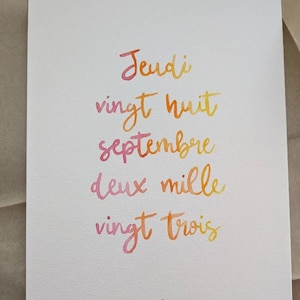 Jeudi
vingt huit
septembre
deux mille
vingt trois